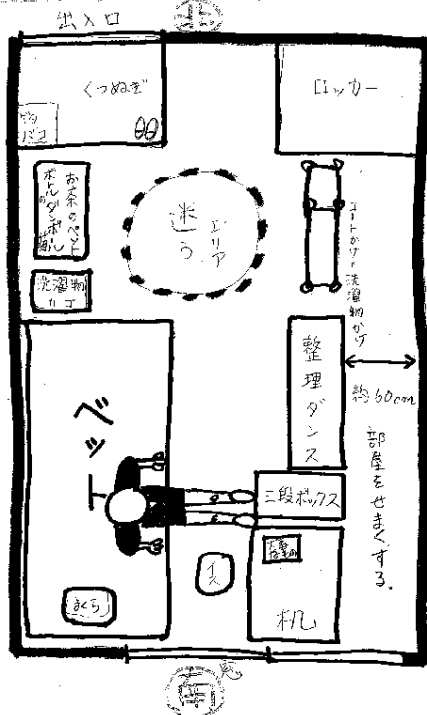 出入口
北
くつぬぎ
ロッカー
お茶のペット
ボトルのダンボール箱
迷う
エリア
コートかけ+洗濯物かけ
洗濯物
カゴ
整理ダンス
約60cm
部屋をせまくする。
ベット
三段ボックス
イス
まくら
机
窓
南